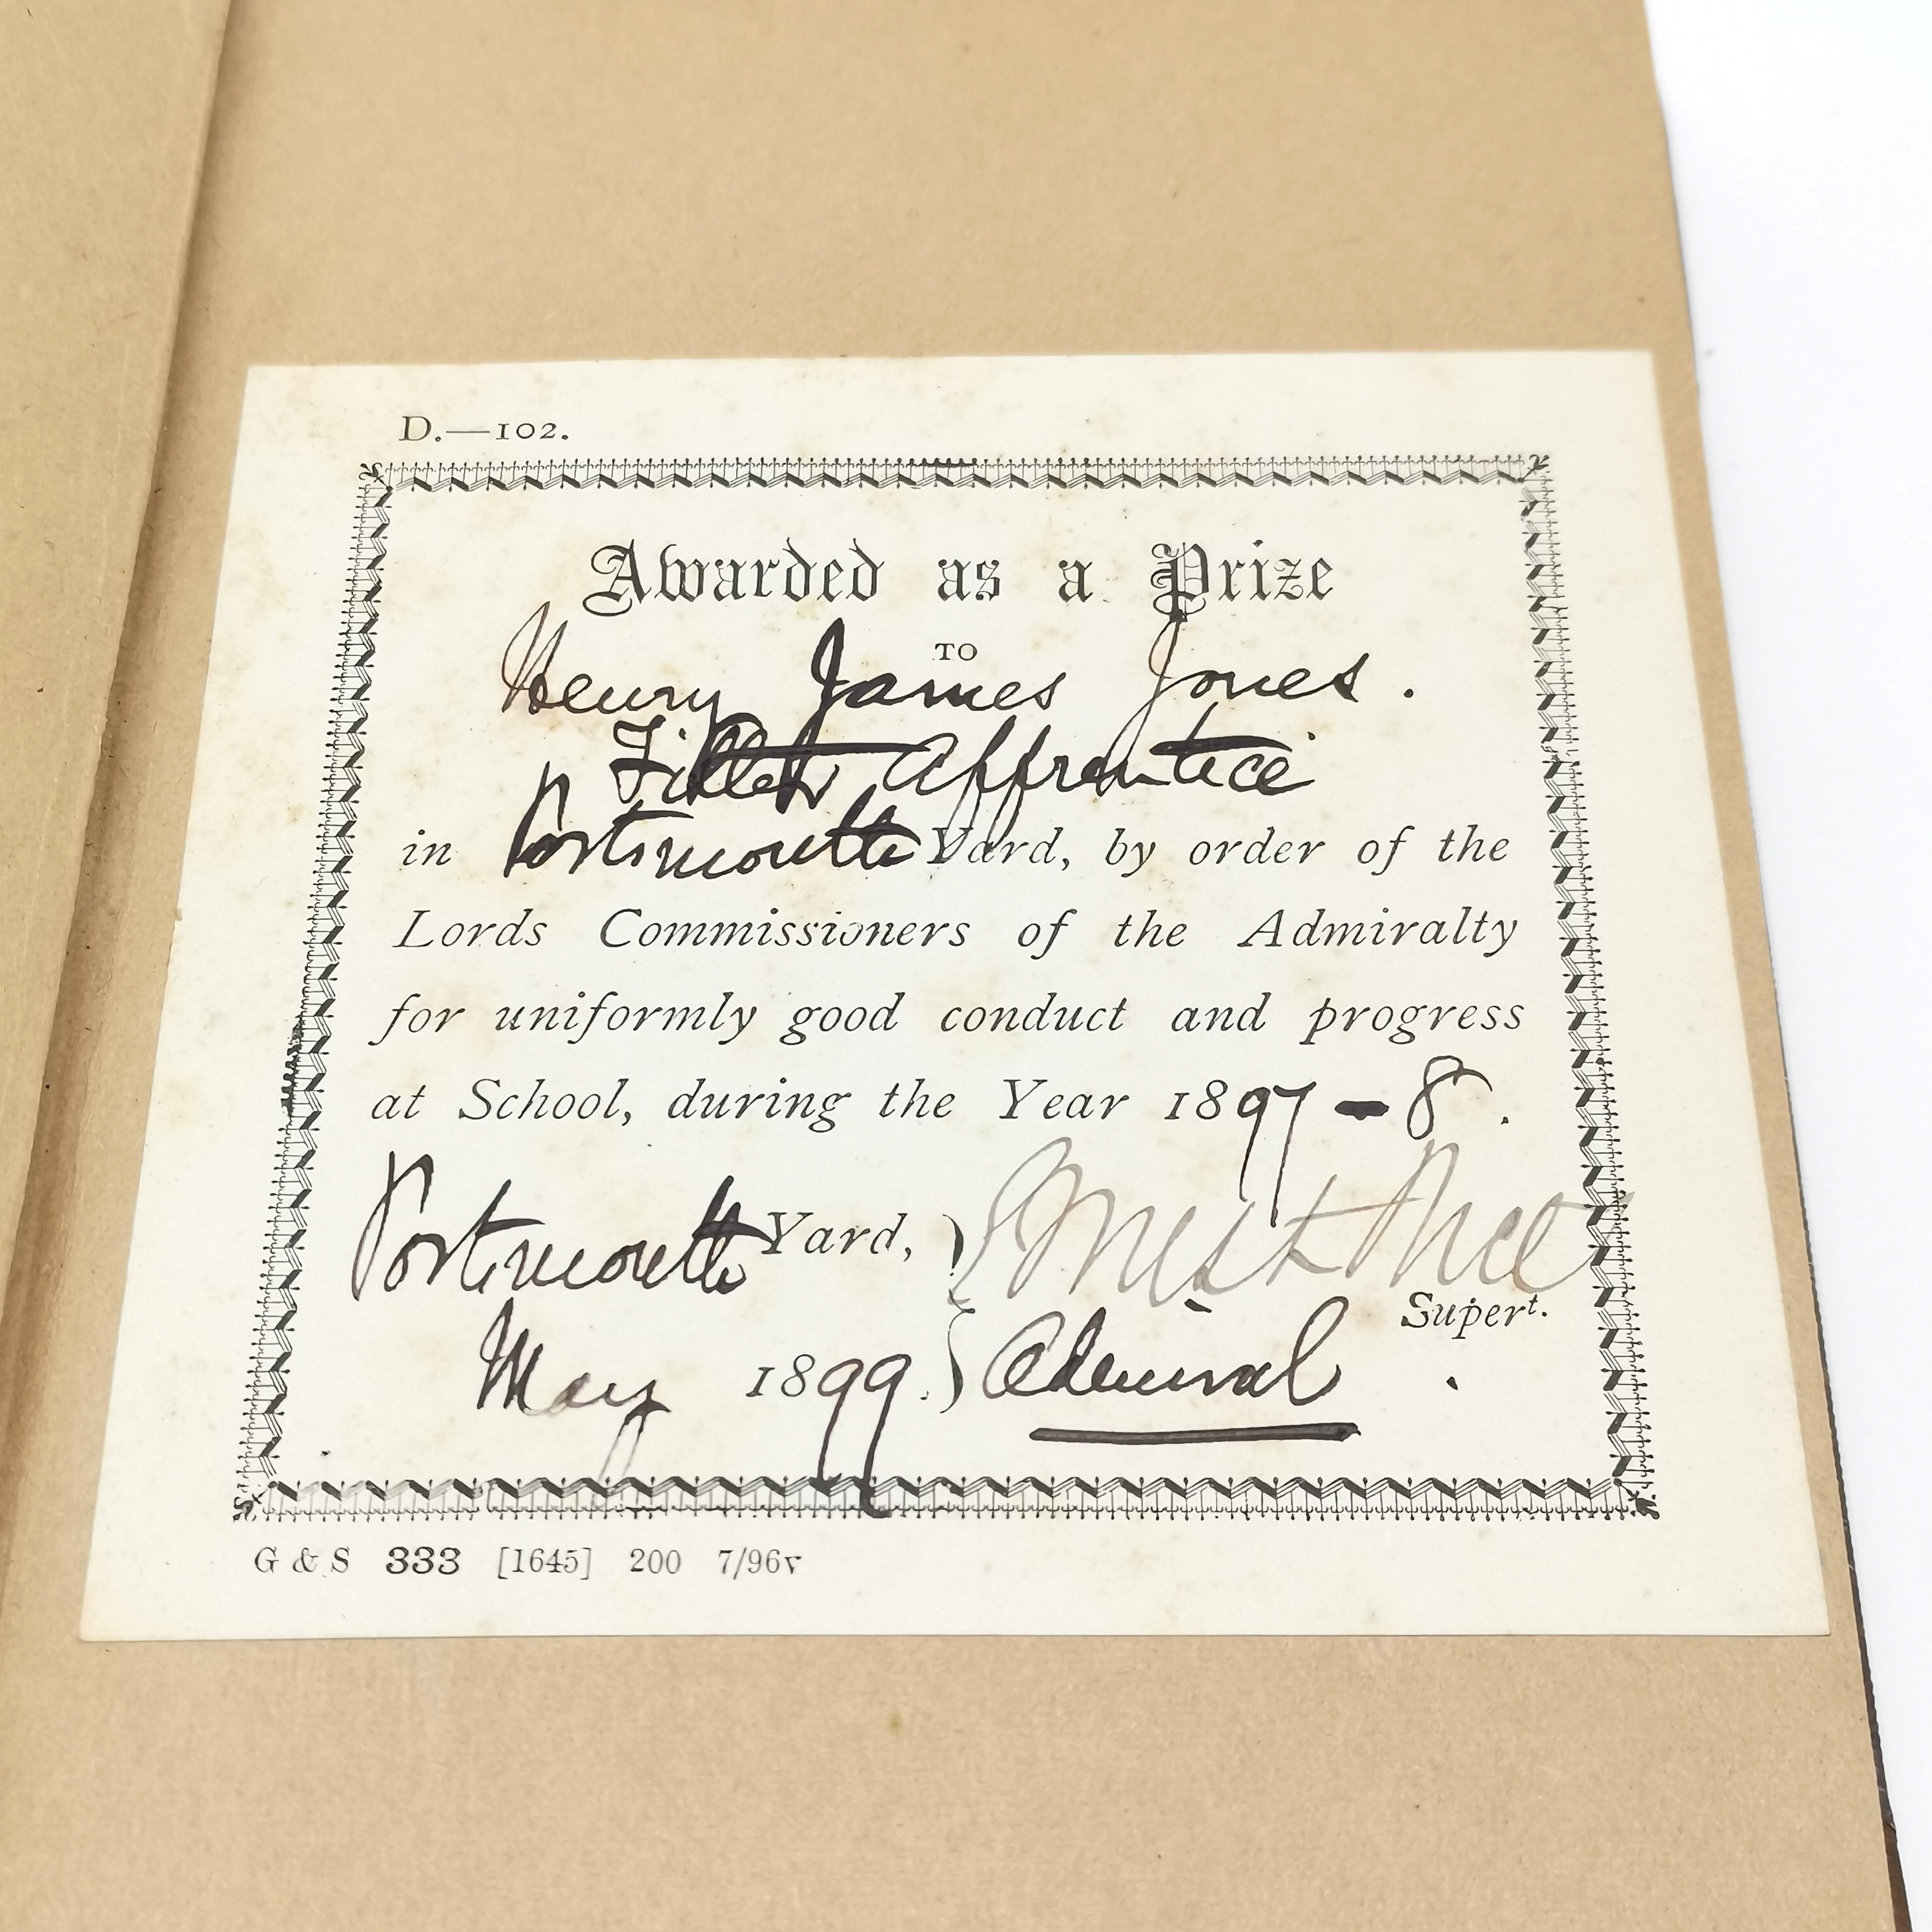 D.—102.
Awarded as a Prize
TO
Henry James Jones.
Fitter Apprentice
in Portsmouth Yard, by order of the
Lords Commissioners of the Admiralty
for uniformly good conduct and progress
at School, during the Year 1897-8.
Portsmouth Yard,
Supert.
May 1899. Admiral
G & S 333 [1645] 200 7/96r